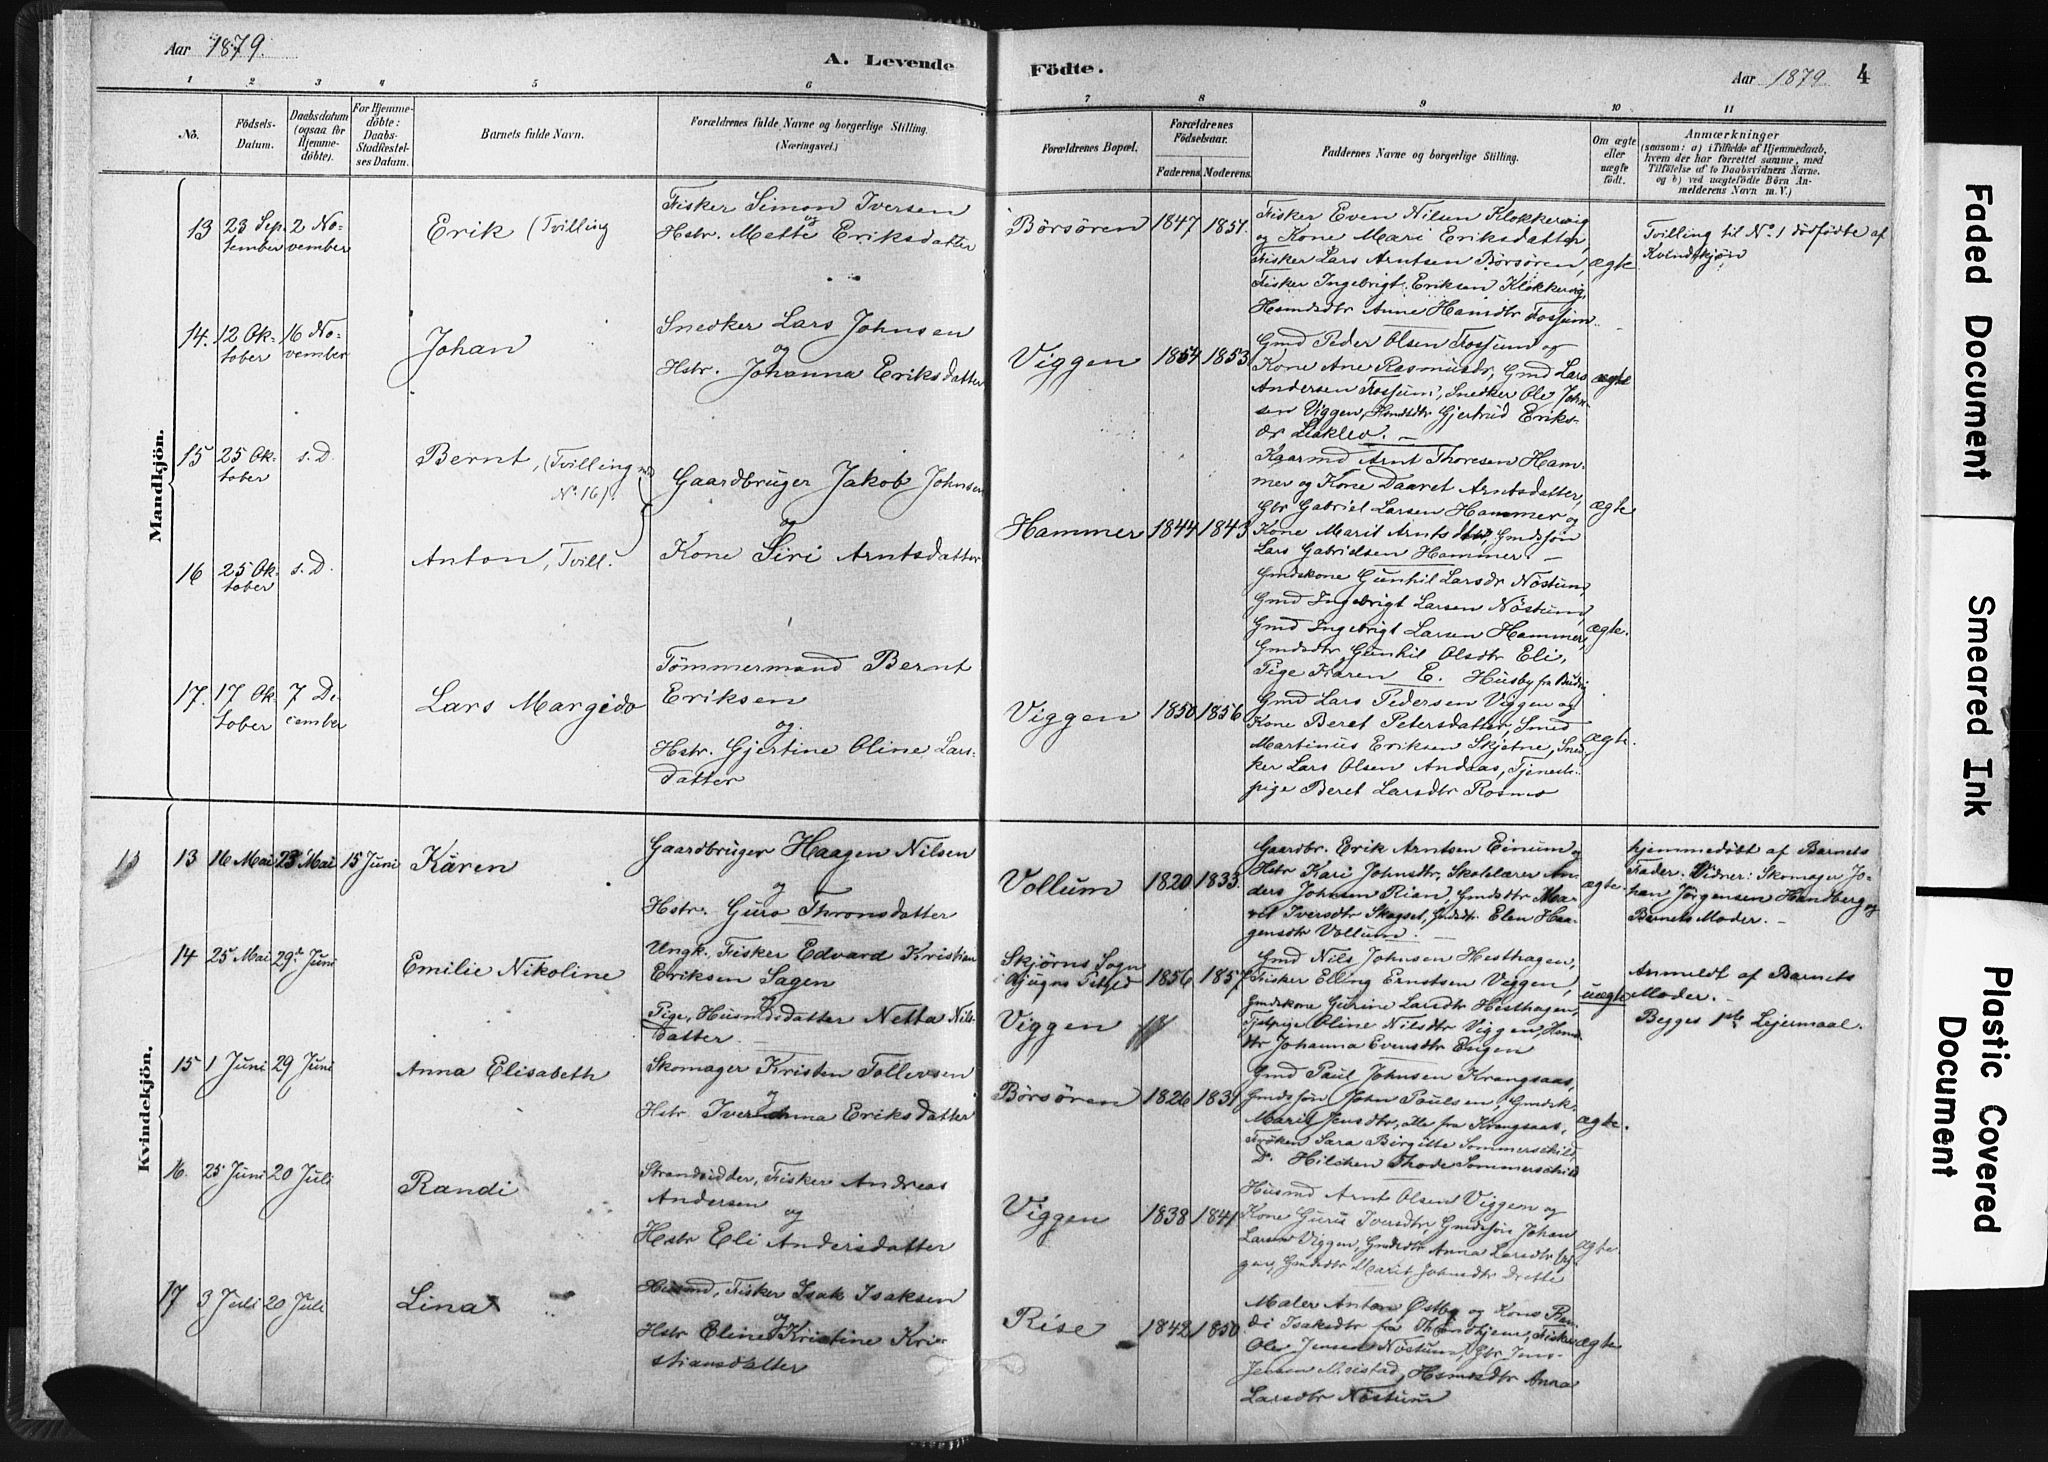 Aar 1879.
A. Levende
Födte.
Aar 1879
4
1 2 3 4 5 6
7 8 9 10 11
No.
Födsels-
Datum.
Daabsdatum
(ogsaa for
Hjemme-
döbte).
For Hjemme-
döbte:
Daabs-
Stadfæstel-
ses Datum.
Barnets fulde Navn.
Forældrenes fulde Navne og borgerlige Stilling.
(Næringsvei.)
Forældrenes Bopæl.
Forældrenes
Födselsaar.
Faderens. Moderens.
Faddernes Navne og borgerlige Stilling.
Om ægte
eller
uægte
födt.
Anmærkninger
(saasom: a) i Tilfælde af Hjemmedaab,
hvem der har forrettet samme, med
Tilföielse af to Daabsvidners Navne.
og b) ved uægtefödte Börn An-
melderens Navn m. V.)
Mandkjön.
13
23 Sep-
tember
2 No-
vember
Erik (Tvilling
Fisker Simon Iversen
og
Hstr. Mette Eriksdatter
Börsören
1847
1851.
Fisker Even Nilsen Klokkervig
og Kone Mari Eriksdatter,
Fisker Lars Arntsen Börsören,
Fisker Ingebrigt Eriksen Klokkervig,
Husmdsdtr Anne Hansdtr Fossum.
ægte
Tvilling til No. 1 dödfödte af
Kvindekjön
14.
12 Ok-
tober
16 No-
vember
Johan
Snedker Lars Johnsen
og
Hstr. Johanna Eriksdatter
Viggen
1854
1853
Gmd Peder Olsen Fossum og
Kone Ane Rasmusdr, Gmd Lars
Andersen Fossum, Snedker Ole John-
sen Viggen, Hmdsdtr Gjertrud Eriks-
dr Leaklev. –
ægte
15
25 Ok-
tober
s. D.
Bernt, (Tvilling med
No. 16).
Gaardbruger Jakob Johnsen
og
Kone Siri Arntsdatter
Hammer
1844
1843
Kaarmd Arnt Thoresen Ham-
mer og Kone Daaret Arntsdatter,
Gbr Gabriel Larsen Hammer og
Kone Marit Arntsdtr, Gmdssön
Lars Gabrielsen Hammer. –
ægte
16
25 Ok-
tober
s. D.
Anton, Tvill.
Gmdskone Gunhil Larsdr Nöstum,
Gmd Ingebrigt Larsen Nöstum,
Gmd Ingebrigt Larsen Hammer,
Gmdsdtr Gunhil Olsdtr Eli,
Pige Karen E. Husby fra Budvig
ægte.
17.
17 Ok-
tober
7 De-
cember
Lars Margido
Tömmermand Bernt
Eriksen
og
Hstr. Gjertine Oline Lars-
datter
Viggen
1850
1856
Gmd Lars Pedersen Viggen og
Kone Beret Petersdatter, Smed
Martinus Eriksen Skjetne, Sned-
ker Lars Olsen Andaas, Tjeneste-
pige Beret Larsdtr Rosmo
ægte.
Kvindekjön.
13
16 Mai
23 Mai
15 Juni
Karen
Gaardbruger Haagen Nilsen
og
Hstr. Guro Thronsdatter
Vollum
1820
1833.
Gaardbr. Erik Arntsen Einum og
Hstr Kari Johnsdtr, Skolelærer An-
ders Johnsen Rian, Gmdsdtr Ma-
rit Iversdtr Skogset, Gmdsdtr. Elen Haa-
gensdtr Vollum.
ægte
hjemmedöbt af Barnets
Fader. Vidner: Skomager Jo-
han Jörgensen Handberg og
Barnets Moder. –
14
25 Mai
29de Juni
Emilie Nikoline
Ungk. Fisker Edvard Kristian
Eriksen Sagen
og
Pige, Husmdsdatter Netta Nils-
datter –
Skjörns Sogn
Viggen
1856
1857
Gmd Nils Johnsen Hesthagen,
Fisker Elling Ernstsen Viggen,
Gmdskone Gurine Larsdtr Hesthagen,
Tjstpige Oline Nilsdtr Viggen, Hsmds-
dtr Johanna Evensdtr Engen
uægte
Anmeldt af Barnets
Moder. –
Begges 1ste Lejermaal.
15
1 Juni
29 Juni
Anna Elisabeth
Skomager Kristen Tollevsen
og
Hstr. Iveranna Eriksdatter
Börsören
1826
1839
Gmd Paul Johnsen Krangsaas,
Gmdssön John Paulsen, Gmdsk.
Marit Jensdtr, alle fra Krangsaas,
Fröken Sara Birgitte Sommerschild,
Do. Hilchen Thode Sommerschild
ægte.
16.
25 Juni
20 Juli
Randi
Strandsidder, Fisker Andreas
Andersen
og
Hstr Eli Andersdatter
Viggen
1838
1841
Husmd Arnt Olsen Viggen og
Kone Guru Iversdtr, Gmdssön Johan
Larsen Viggen, Gmdsdtr Anna Larsdtr Vig-
gen, Gmdsdtr Marit Johnsdtr Dretti
ægte
17
3 Juli
20 Juli
Lina
Husmd, Fisker Isak Isaksen
og
Hstr Eline Kristine Kri-
stiansdatter
Rise
1842
1850
Maler Anton Östby og Kone Ran-
di Isaksdtr fra Throndhjem, Fisker
Ole Jensen Nöstum, Gbr Jens
Jensen Meistad, Hsmdsdtr Anna
Larsdtr Nöstum
ægte
Faded Document
Smeared Ink
Plastic Covered
Document